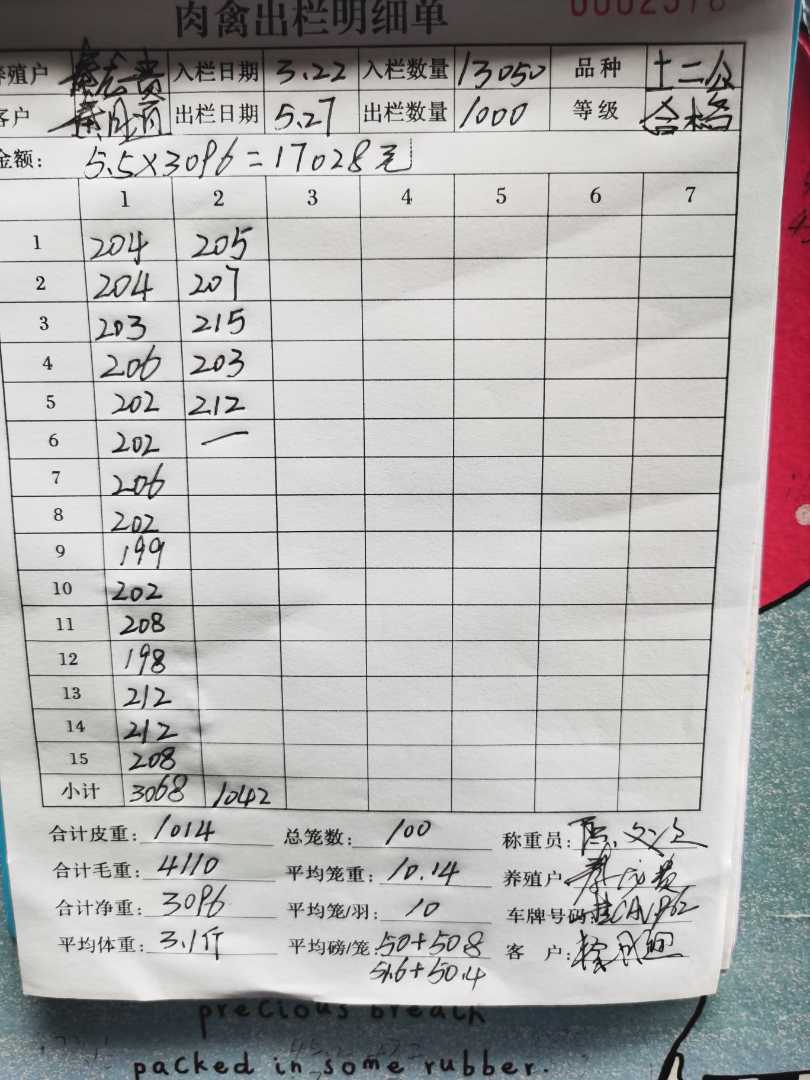 0002578
肉禽出栏明细单
养殖户 入栏日期 3.22 入栏数量 13050 品种 土二公
客户 出栏日期 5.27 出栏数量 1000 等级 合格
金额: 5.5×3096=17028元
1 2 3 4 5 6 7
1 204 205
2 204 207
3 203 215
4 206 203
5 202 212
6 202 一
7 206
8 202
9 199
10 202
11 208
12 198
13 212
14 212
15 208
小计 3068 1042
合计皮重: 1014 总笼数: 100 称重员:
合计毛重: 4110 平均笼重: 10.14 养殖户
合计净重: 3096 平均笼/羽: 10 车牌号码:
平均体重: 3.1斤 平均磅/笼: 50+50.8 客 户:
51.6+50.4
precious breath
packed in some rubber.